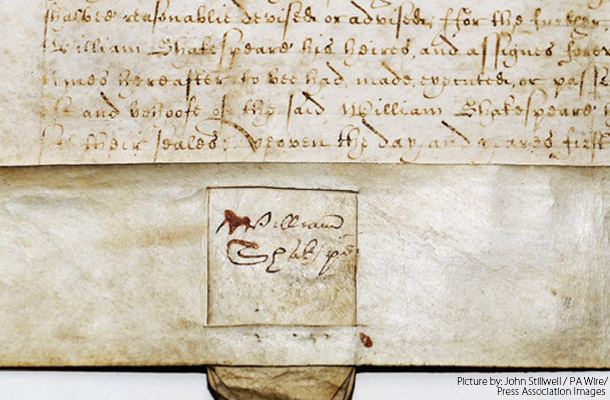 shalbee reasonablie devised or advised, ffor the further
William Shakespeare his heires, and assignes forev
tymes hereafter to bee had, made, executed, or passe
use and behoofe of the said William Shakespeare
to their seales; yeoven the day and yeares first
William
Shakspē
Picture by: John Stillwell / PA Wire/
Press Association Images